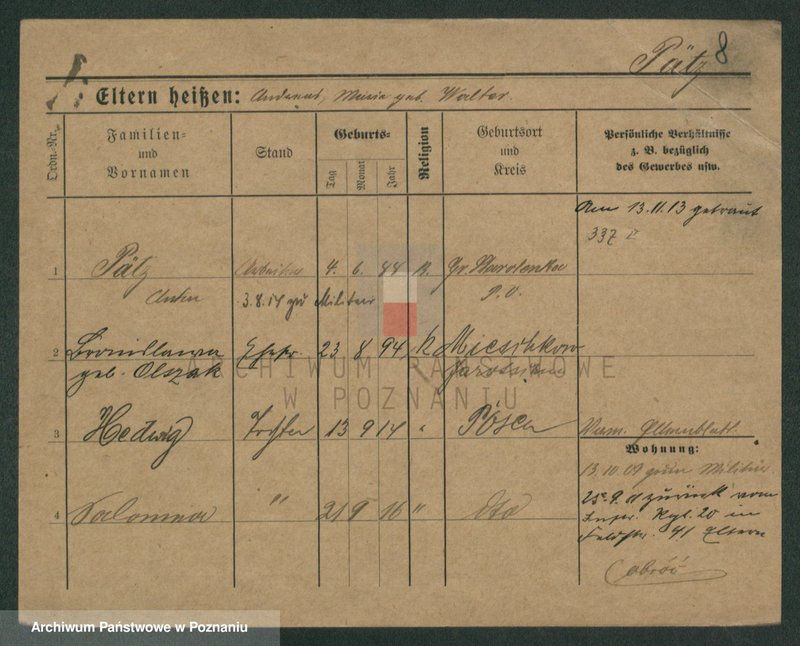 Pätz 8
Eltern heißen: Maria geb. Walter.
Ordn.-Nr.
Familien-
und
Vornamen
Stand
Geburts-
Tag
Monat
Jahr
Religion
Geburtsort
und
Kreis
Persönliche Verhältnisse
z. B. bezüglich
des Gewerbes usw.
Am 13.11.13 getraut
337
1 Pätz Arbeiter 4. 6. 44 K.
3.8.14 zu Militär P. O.
2 Bronislawa Ehefr. 23 8 94 K
geb. Olszak
3 Hedwig Tochter 13 9 14 " Posen
Elternblatt
Wohnung:
13.10.09 zum Militär
4 Salomea " 21 9 16 " dto
25.9.11 zurück vom
Infr. Rgt. 20 in
Feldstr. 41 Eltern
ARCHIWUM PAŃSTWOWE
W POZNANIU
Archiwum Państwowe w Poznaniu